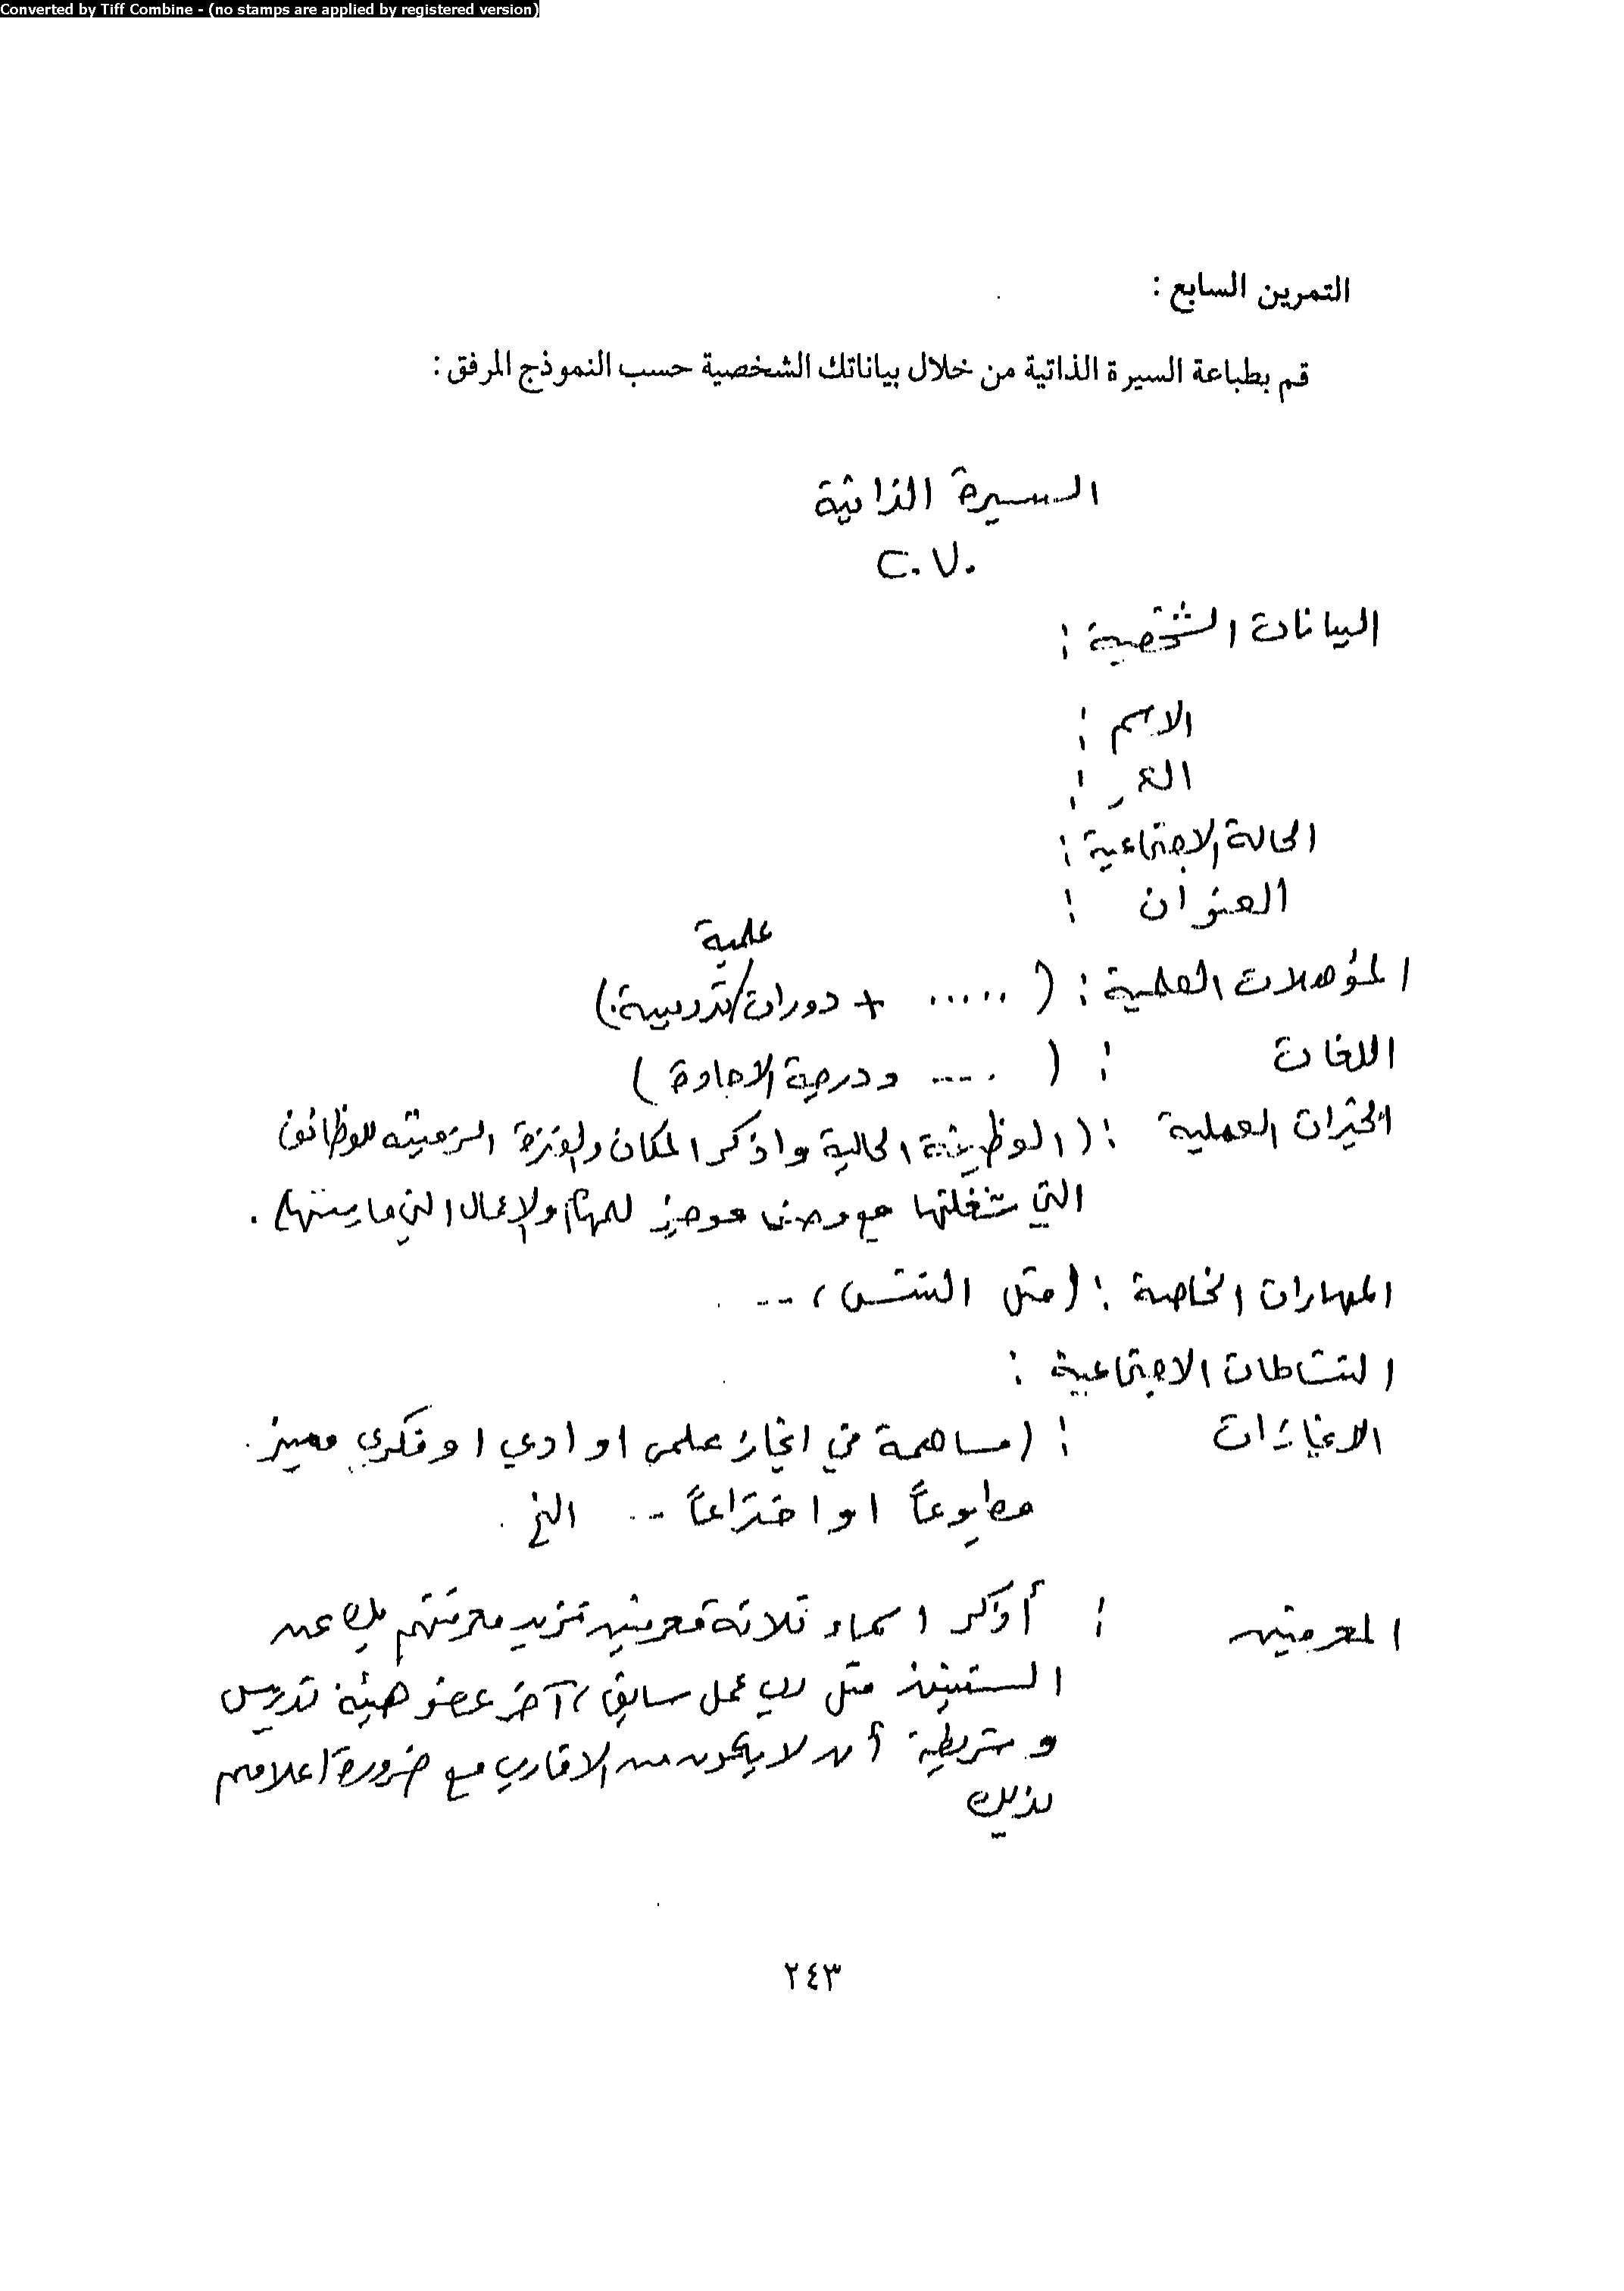 Converted by Tiff Combine - (no stamps are applied by registered version)
التمرين السابع :
قم بطباعة السيرة الذاتية من خلال بياناتك الشخصية حسب النموذج المرفق :
السيرة الذاتية
C.V.
البيانات الشخصية :
الاسم :
العمر :
الحالة الاجتماعية :
العنوان :
علمية
المؤهلات العلمية : ( ..... + دورات/تدريبية.)
اللغات : ( .... ودرجة الاجادة )
الخبرات العملية : ( الوظيفة الحالية واذكر المكان والفترة الزمنية للوظائف
التي شغلتها مع وصف موجز للمهام والاعمال التي مارستها .
المهارات الخاصة : (مثل التنس، ...
النشاطات الاجتماعية :
الانجازات : (مساهمة في انجاز علمي او ادبي او فكري مميز.
مطبوعاً او اختراعاً ... الخ .
المعرفين : أذكر اسماء ثلاثة معرفين تزيد معرفتهم بك عن
السنتين مثل رب عمل سابق، آخر عضو هيئة تدريس
وشريطة أن لا يكون من الاقارب مع ضرورة اعلامهم
بذلك
٢٤٣